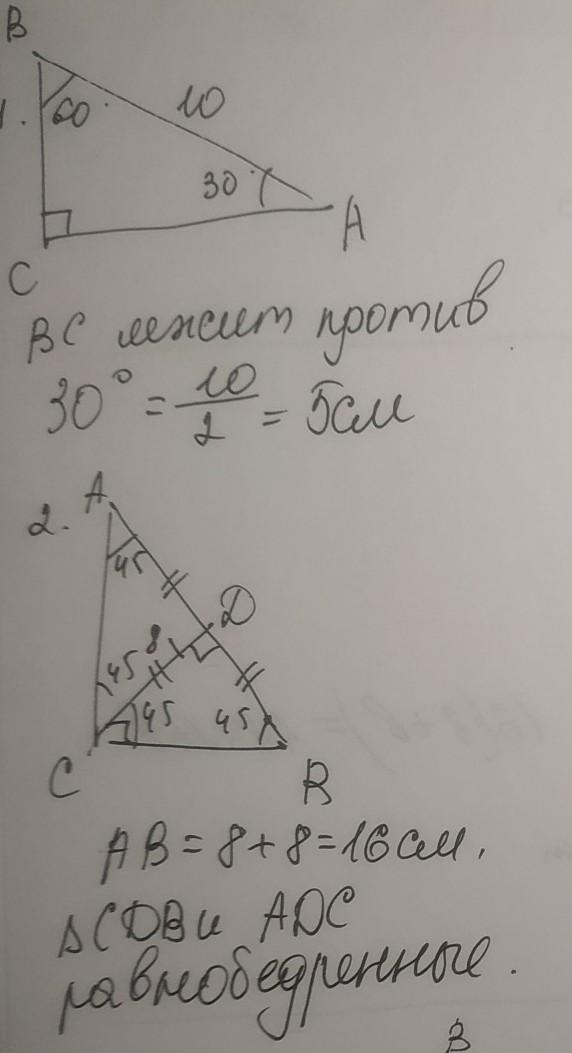 B
1.
60°
10
30°
A
C
BC лежит против
30° = 10/2 = 5см
2.
A
45
D
8
45
45
45
C
B
AB = 8 + 8 = 16 см.
ΔCDB и ADC
равнобедренные.
B